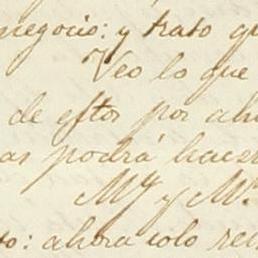 negocio: y trato
Veo lo que
de estos por
as podrá hacer
My y M.
to: ahora solo